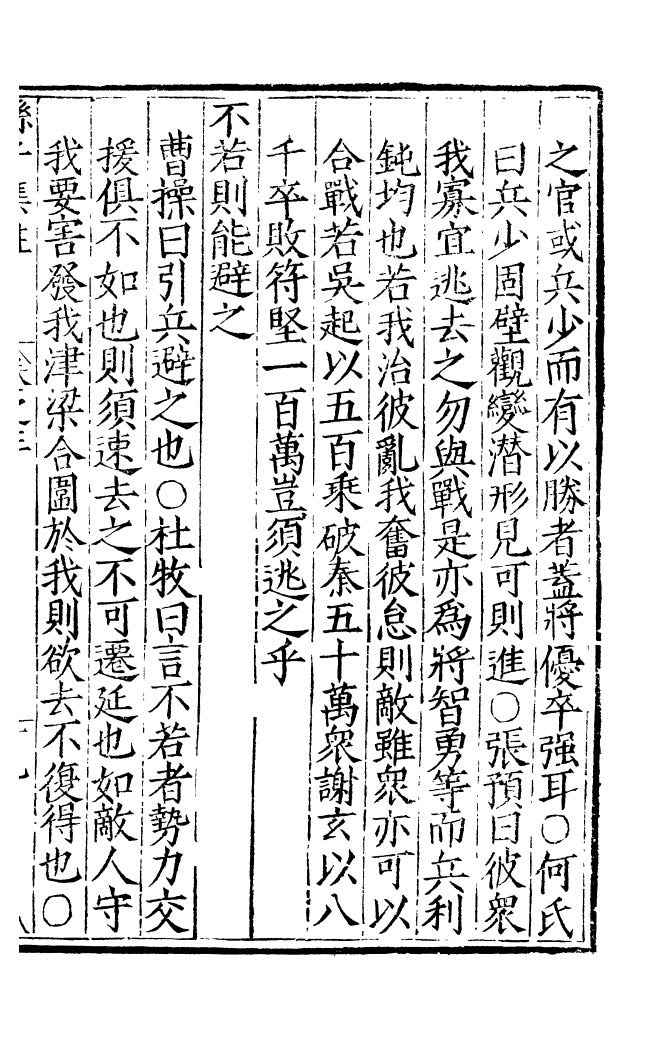 之官或兵少而有以勝者蓋將優卒强耳○何氏
曰兵少固壁觀變潛形見可則進○張預曰彼衆
我寡宜逃去之勿與戰是亦爲將智勇等而兵利
鈍均也若我治彼亂我奮彼怠則敵雖衆亦可以
合戰若吳起以五百乘破秦五十萬衆謝玄以八
千卒敗苻堅一百萬豈須逃之乎
不若則能避之
曹操曰引兵避之也○杜牧曰言不若者勢力交
援俱不如也則須速去之不可遷延也如敵人守
我要害發我津梁合圍於我則欲去不復得也○